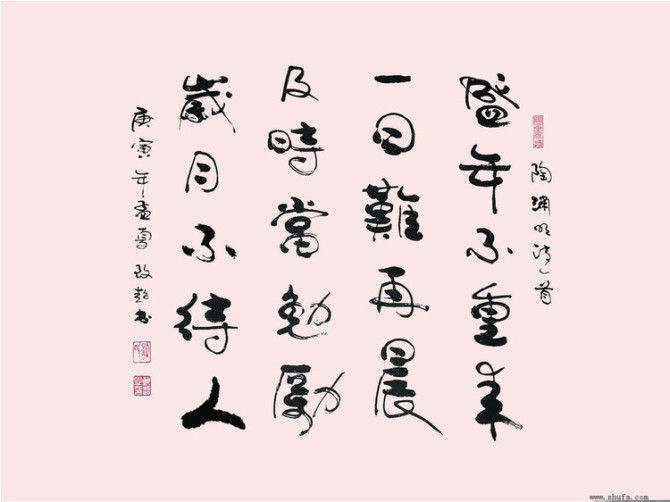 陶渊明诗一首
盛年不重来
一日難再晨
及時當勉勵
歲月不待人
庚寅年孟夏书
www.shufa.com